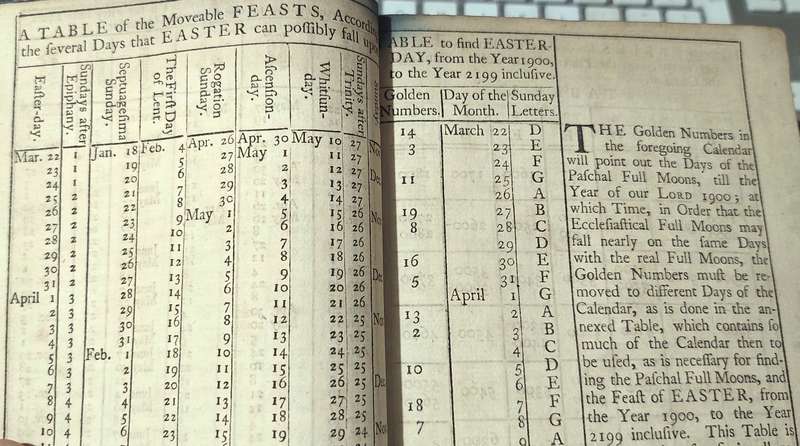 A TABLE of the Moveable FEASTS, Accordin
the ſeveral Days that EASTER can poſſibly fall upo
Eaſter-day. Sundays after Epiphany. Septuageſima Sunday. The Firſt Day of Lent. Rogation Sunday. Aſcenſion-day. Whitſun-day. Sundays after Trinity. Sunday
Mar. 22 1 Jan. 18 Feb. 4 Apr. 26 Apr. 30 May 10 27 No
23 1 19 5 27 May 1 11 27
24 1 20 6 28 2 12 27 Dec
25 2 21 7 29 3 13 27
26 2 22 8 30 4 14 27
27 2 23 9 May 1 5 15 26 No
28 2 24 10 2 6 16 26
29 2 25 11 3 7 17 26
30 2 26 12 4 8 18 26
31 2 27 13 5 9 19 26 Dec
April 1 3 28 14 6 10 20 26
2 3 29 15 7 11 21 26
3 3 30 16 8 12 22 25 No
4 3 31 17 9 13 23 25
5 3 Feb. 1 18 10 14 24 25
6 3 2 19 11 15 25 25
7 3 3 20 12 16 26 25 Dec
8 4 4 21 13 17 27 25
9 4 5 22 14 18 28 25
10 4 6 23 15 19 29 24 No
ABLE to find EASTER-
DAY, from the Year 1900,
to the Year 2199 incluſive.
Golden Numbers. Day of the Month. Sunday Letters.
14 March 22 D
3 23 E
24 F
11 25 G
26 A
19 27 B
8 28 C
29 D
16 30 E
5 31 F
April 1 G
13 2 A
2 3 B
4 C
10 5 D
6 E
18 7 F
7 8 G
9 A
THE Golden Numbers in
the foregoing Calendar
will point out the Days of the
Paſchal Full Moons, till the
Year of our LORD 1900; at
which Time, in Order that the
Eccleſiaſtical Full Moons may
fall nearly on the ſame Days
with the real Full Moons, the
Golden Numbers muſt be re-
moved to different Days of the
Calendar, as is done in the an-
nexed Table, which contains ſo
much of the Calendar then to
be uſed, as is neceſſary for find-
ing the Paſchal Full Moons, and
the Feaſt of EASTER, from
the Year 1900, to the Year
2199 incluſive. This Table is